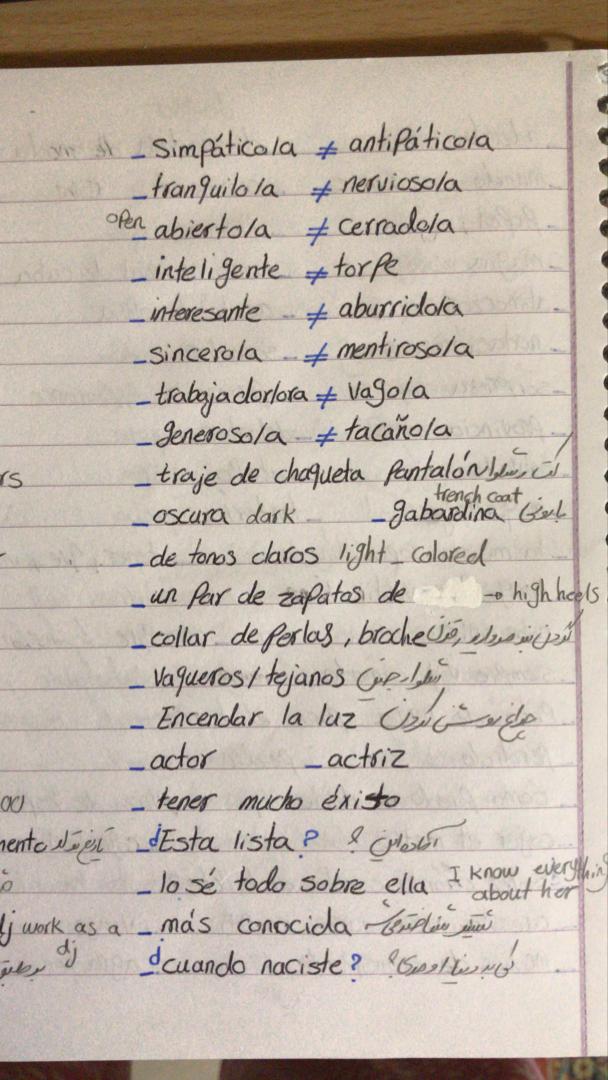 - Simpático/a ≠ antipático/a
- tranquilo/a ≠ nervioso/a
open - abierto/a ≠ cerrado/a
- inteligente ≠ torpe
- interesante ≠ aburrido/a
- sincero/a ≠ mentiroso/a
- trabajador/ora ≠ vago/a
- generoso/a ≠ tacaño/a
rs - traje de chaqueta pantalón کت و شلوار
- oscura dark - gabardina trench coat بارونی
- de tonos claros light-colored
- un par de zapatos de → high heels
- collar de perlas, broche گردن بند مروارید
- vaqueros/tejanos شلوار جین
- Encendar la luz چراغ روشن کردن
- actor - actriz
- tener mucho éxisto
mento تاریخ تولد - ¿Esta lista? آماده این؟
- lo sé todo sobre ella I know everything about her
dj work as a dj - más conocida بیشتر شناخته می‌شه
- ¿cuando naciste? کی به دنیا اومدی؟